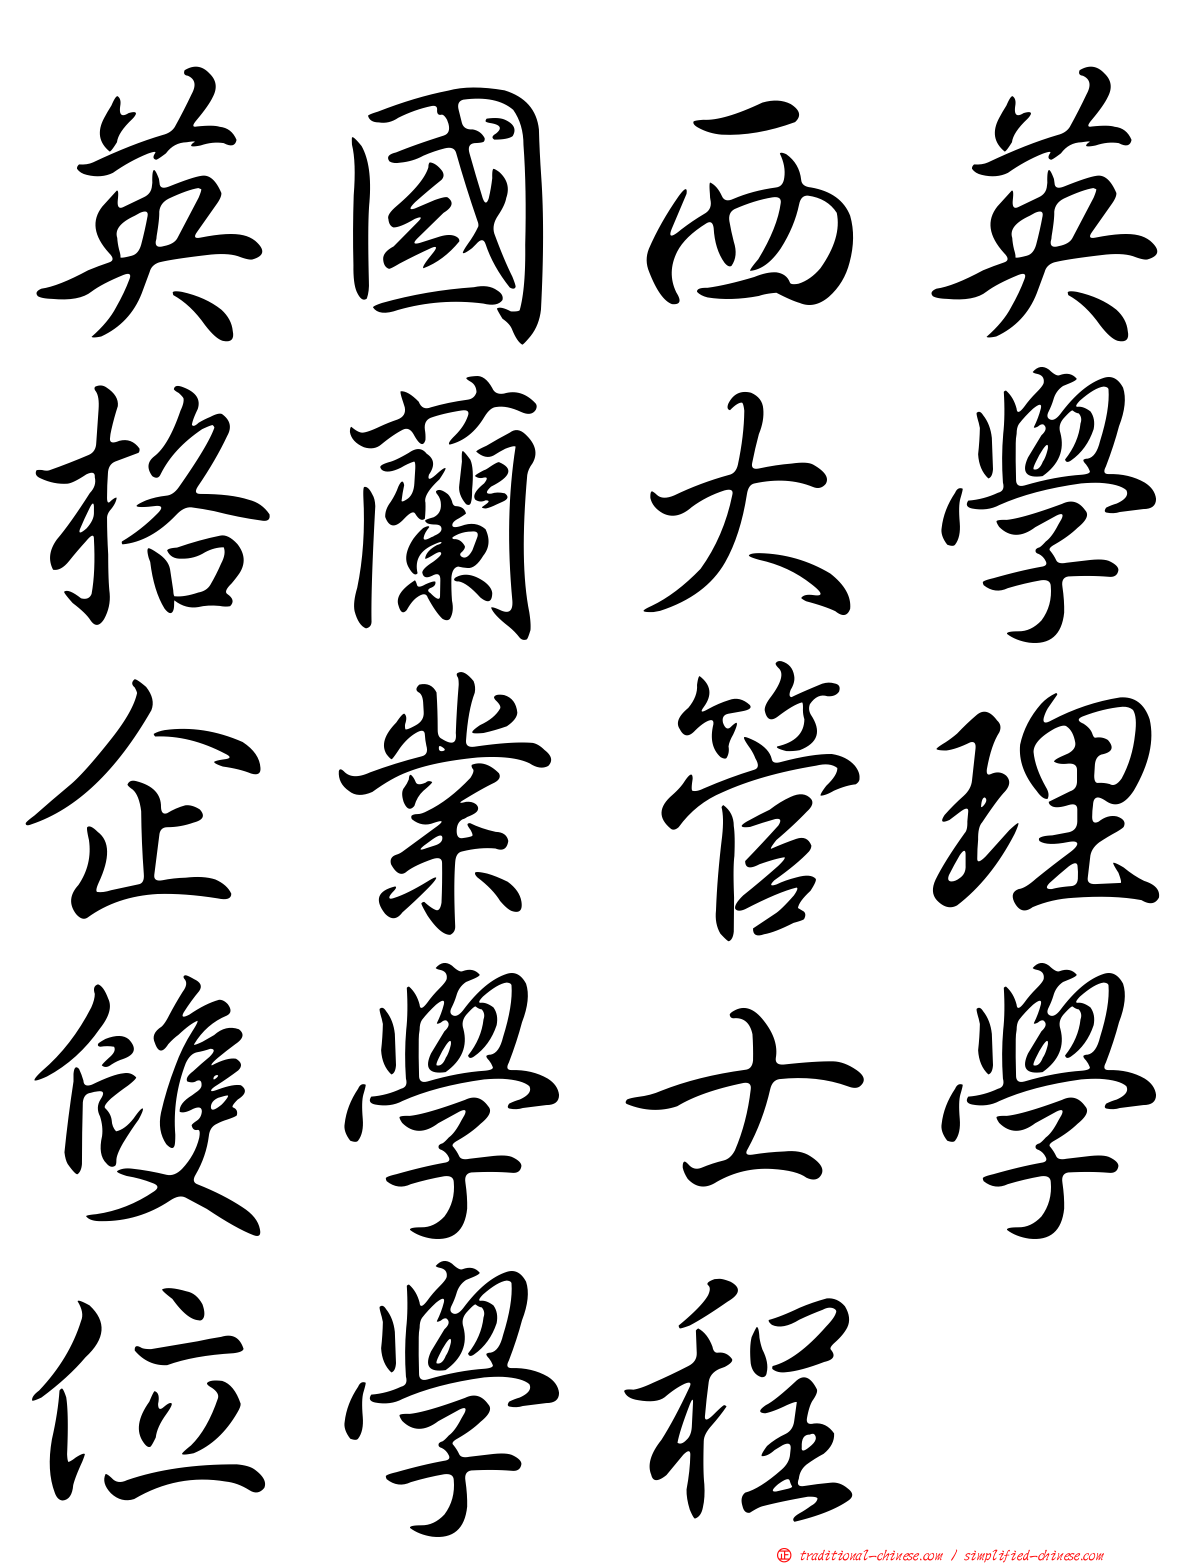 英國西英
格蘭大學
企業管理
雙學士學
位學程
正 traditional-chinese.com / simplified-chinese.com